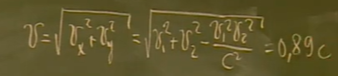 v = √(v_x² + v_y²) = √(v₁² + v₂² - v₁²v₂²/c²) = 0,89c